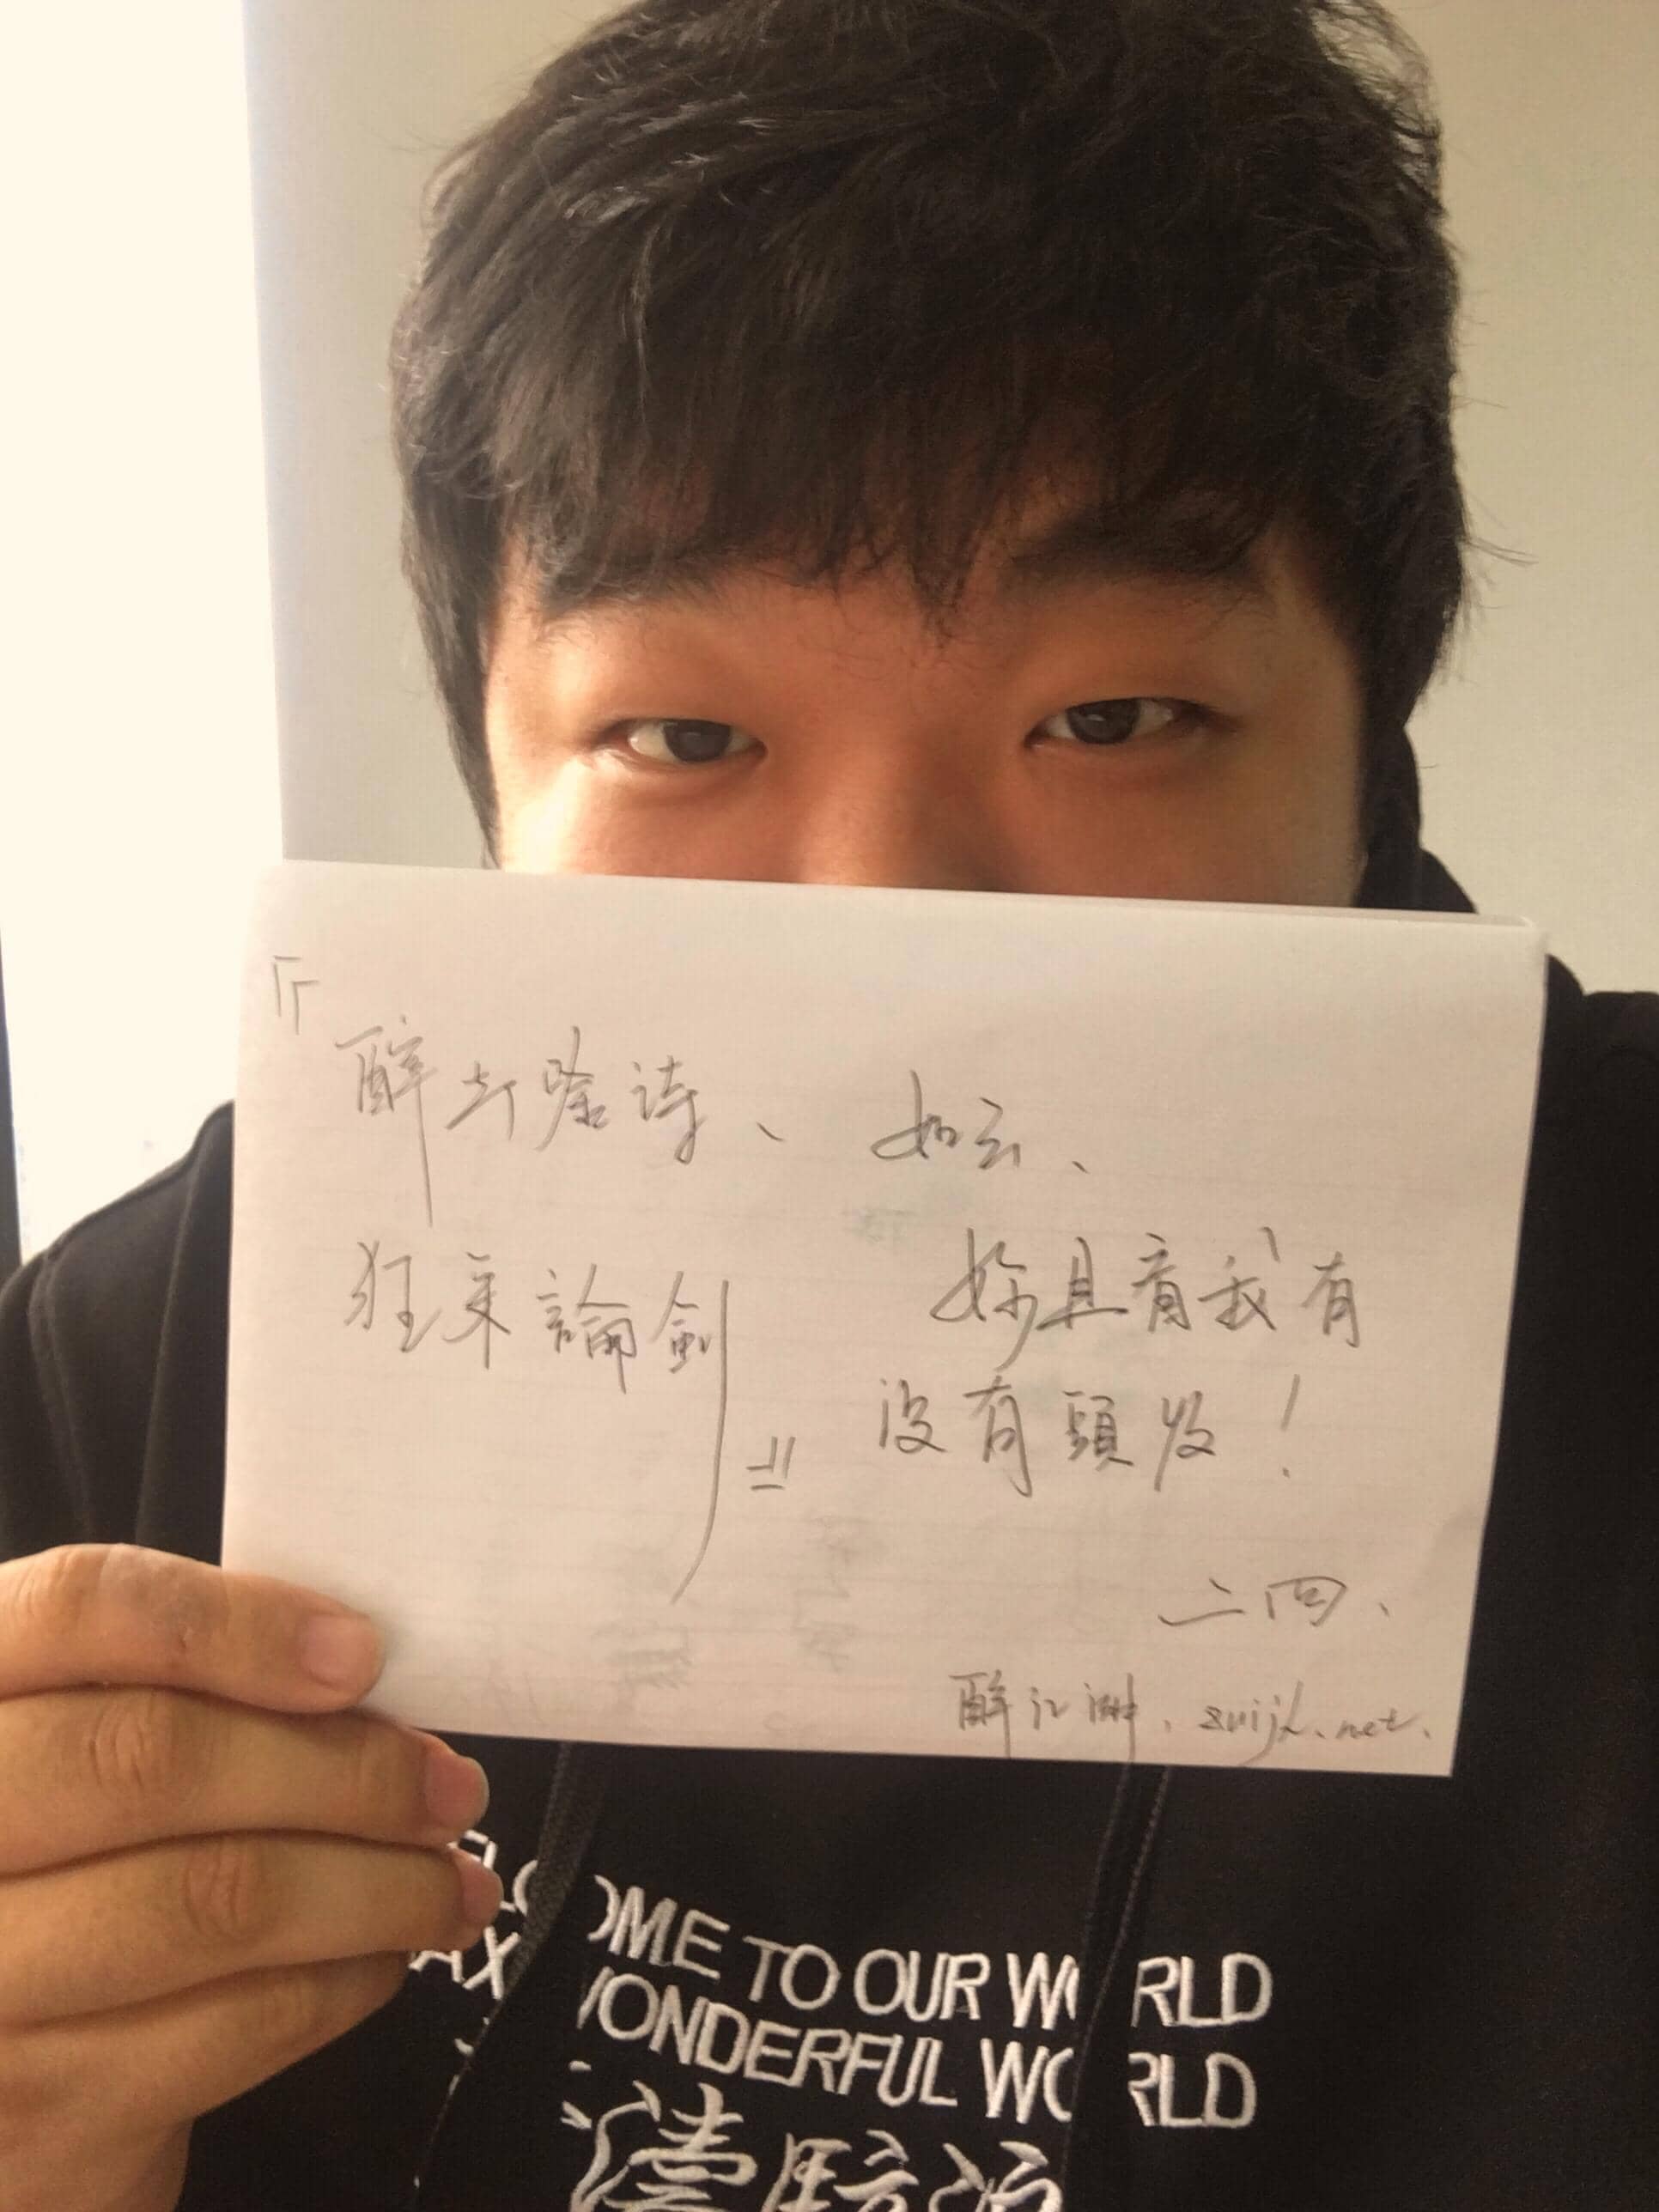 『醉 诗、
狂来論劍』
如云、
妳且看我有
没有頭发！
二四、
醉江湖. zuijh.net.
ELCOME TO OUR WORLD
AX WONDERFUL WORLD